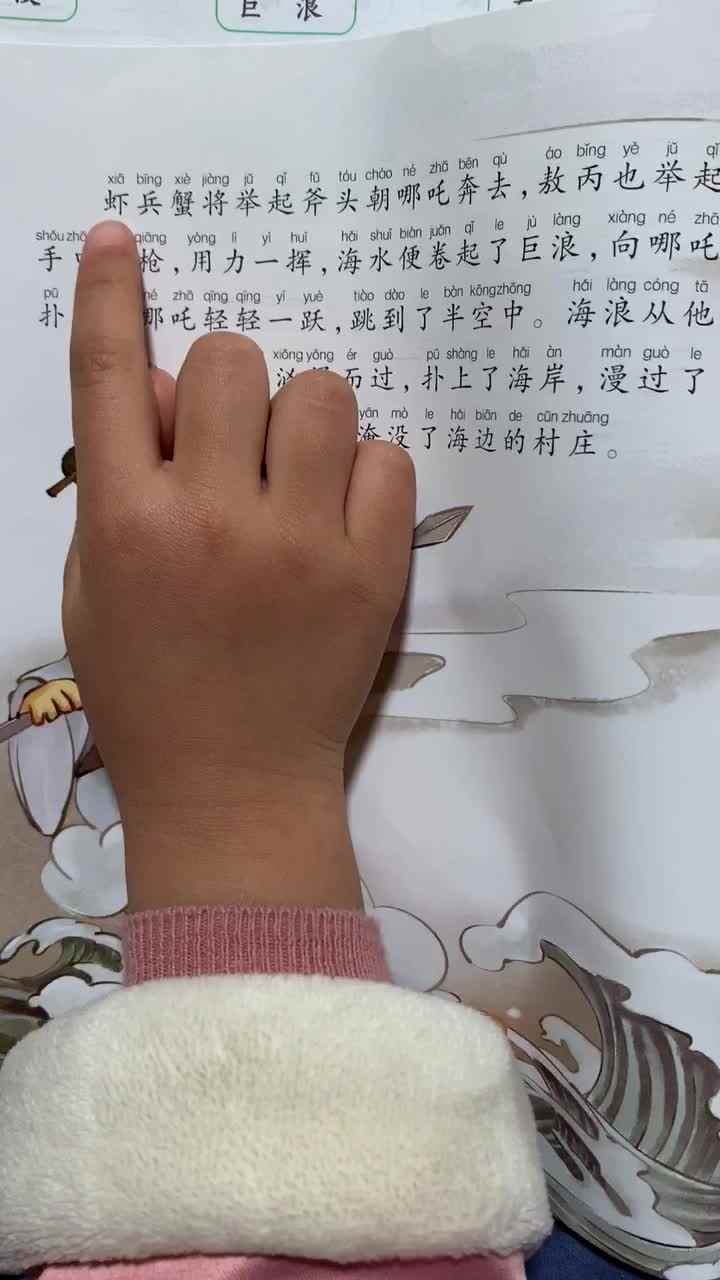 巨浪
xiā bīng xiè jiàng jǔ qǐ fǔ tóu cháo né zhā bēn qù áo bǐng yě jǔ qǐ
虾兵蟹将举起斧头朝哪吒奔去，敖丙也举起
shǒu qiāng yòng lì yì huī hǎi shuǐ biàn juǎn qǐ le jù làng xiàng né zhā
手 枪，用力一挥，海水便卷起了巨浪，向哪吒
pū né zhā qīng qīng yí yuè tiào dào le bàn kōng zhōng hǎi làng cóng tā
扑 哪吒轻轻一跃，跳到了半空中。海浪从他
xiōng yǒng ér guò pū shàng le hǎi àn màn guò le
而过，扑上了海岸，漫过了
yān mò le hǎi biān de cūn zhuāng
淹没了海边的村庄。